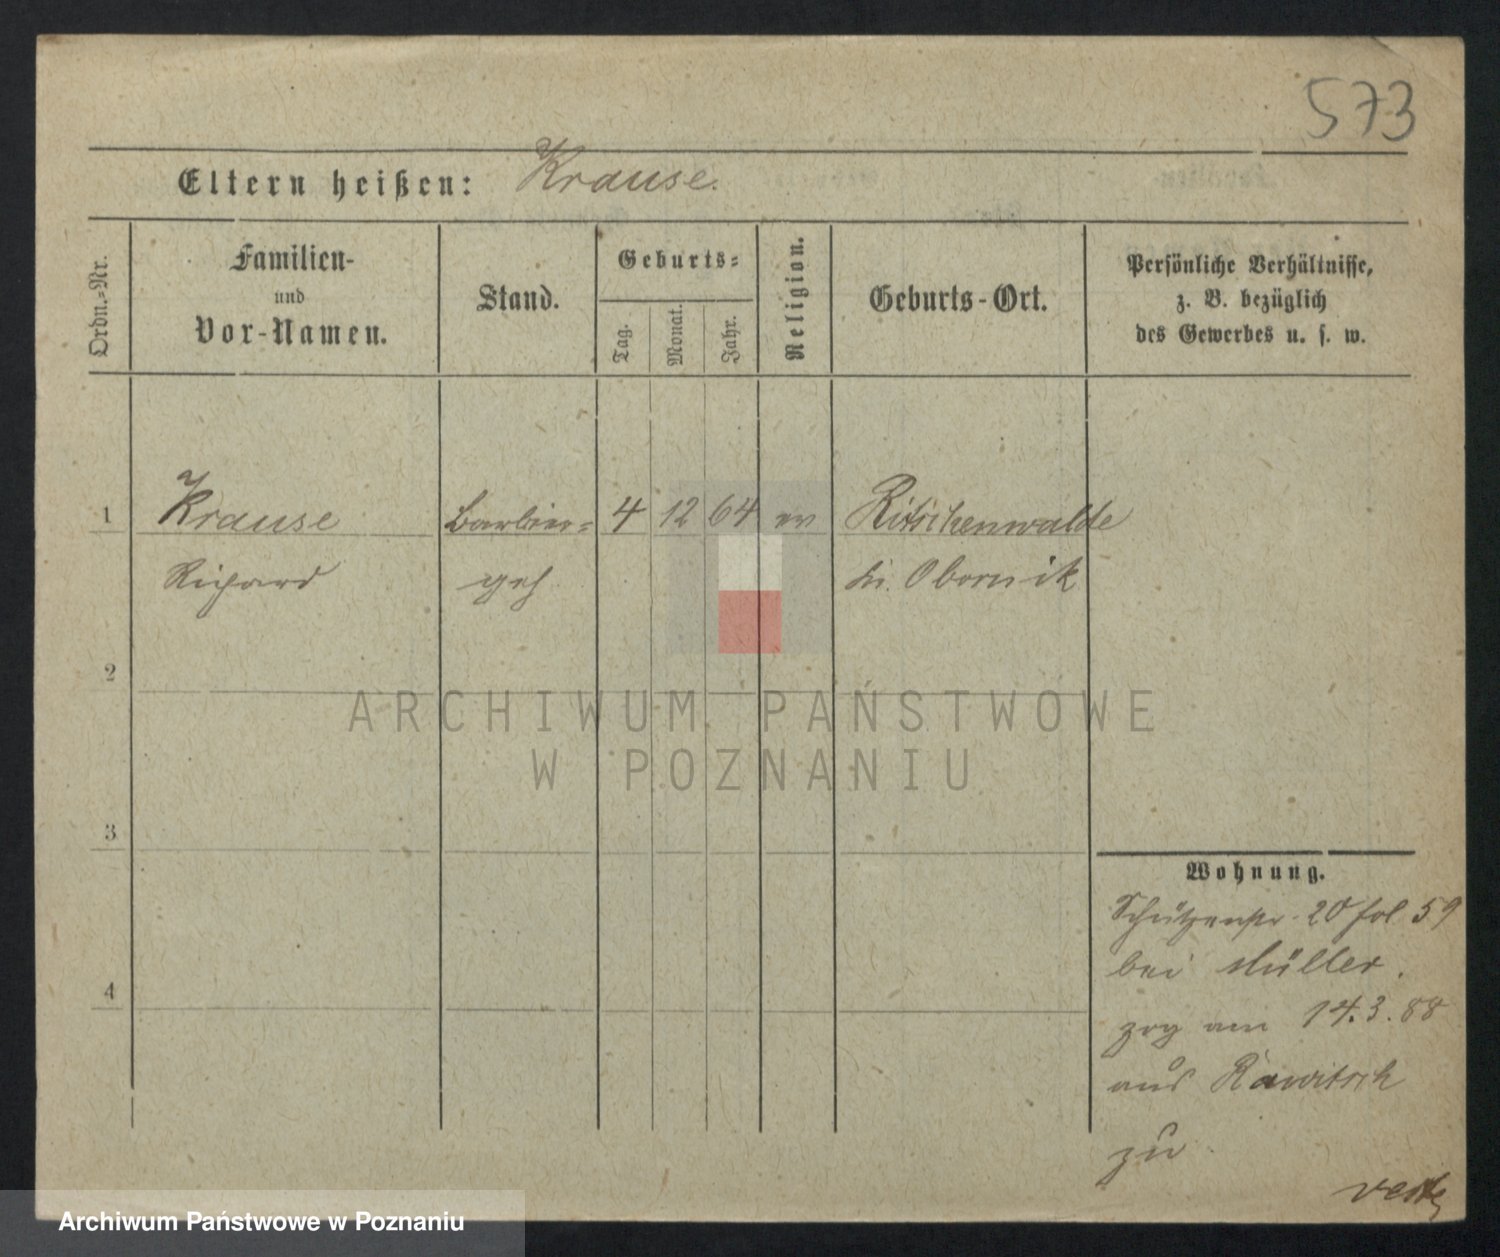 573
Eltern heißen: Krause.
Ordn.-Nr.
Familien-
und
Vor-Namen.
Stand.
Geburts-
Tag.
Monat.
Jahr.
Religion.
Geburts-Ort.
Persönliche Verhältnisse,
z. B. bezüglich
des Gewerbes u. s. w.
1 Krause Barbier- 4 12 64 ev Ritschenwalde
Richard geh. Kr. Obornik
2
3
4
Wohnung.
Schützenstr. 20 fol 59
bei Müller.
zog am 14.3.88
aus Rawitsch
zu
ARCHIWUM PAŃSTWOWE
W POZNANIU
Archiwum Państwowe w Poznaniu